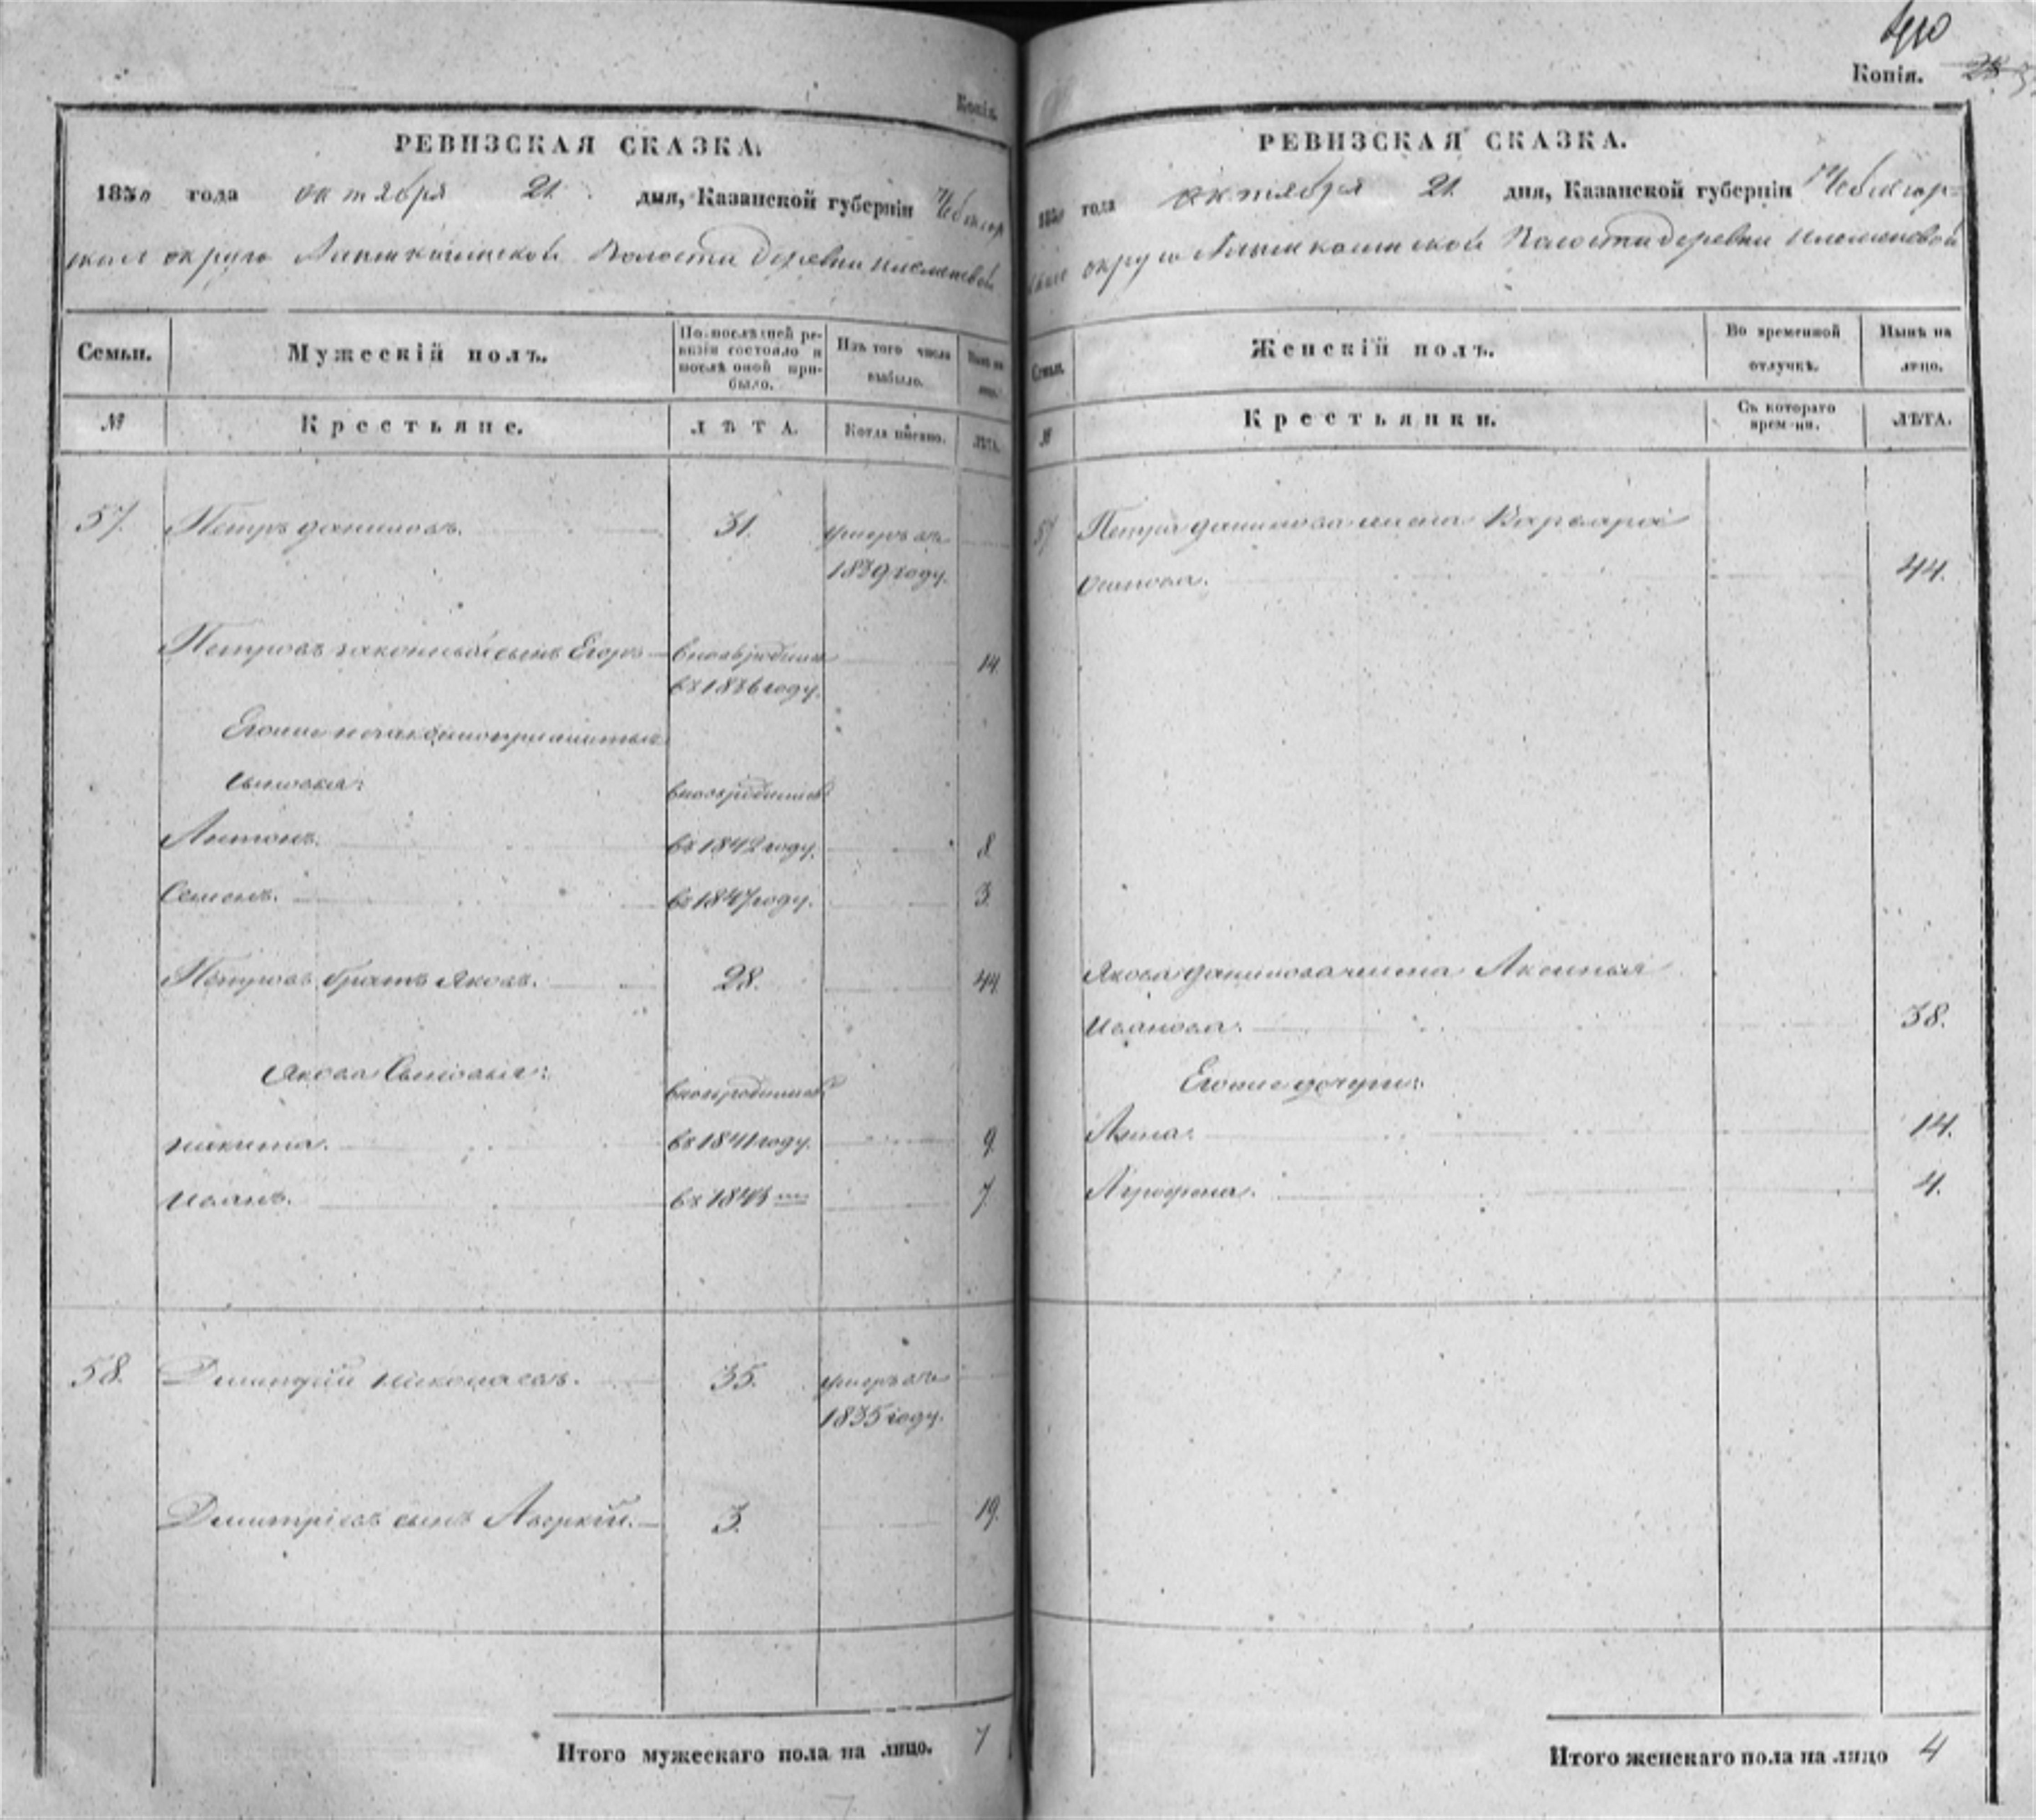 Копія.
РЕВИЗСКАЯ СКАЗКА.
1850 года октября 21 дня, Казанской губерніи Чебоксар
скаго округа волости деревни
Семьи.
Мужескій полъ.
По послѣдней ре-
визіи состояло и
послѣ оной при-
было.
Изъ того числа
выбыло.
Нынѣ на
лицо.
№
Крестьяне.
ЛѢТА.
Когда именно.
ЛѢТА.
57. Петръ Даниловъ. 31. умеръ въ
1839 году.
Петровъ законный сынъ Егоръ вновь родился 14.
въ 1836 году.
Егоже незаконноприжитые
сыновья: вновь родились
Антонъ. въ 1842 году. 8
Семенъ. въ 1847 году. 3.
Петровъ братъ Яковъ. 28. 44.
Якова Сыновья: вновь родились
Никита. въ 1841 году. 9.
Иванъ. въ 1843 7.
58. Димитрій Николаевъ. 35. умеръ въ
1835 году.
Димитріевъ сынъ Аверкій. 3. 19.
Итого мужескаго пола на лицо. 7
440
Копія.
РЕВИЗСКАЯ СКАЗКА.
1850 года октября 21 дня, Казанской губерніи Чебоксар-
скаго округа волости деревни
Семьи.
Женскій полъ.
Во временной
отлучкѣ.
Нынѣ на
лицо.
№
Крестьянки.
Съ котораго
времени.
ЛѢТА.
57 Петра Данилова жена Варвара
Осипова. 44.
Якова Данилова жена Аксинья
Иванова. 38.
Егоже дочери:
Анна. 14.
Агрофена. 4.
Итого женскаго пола на лицо 4